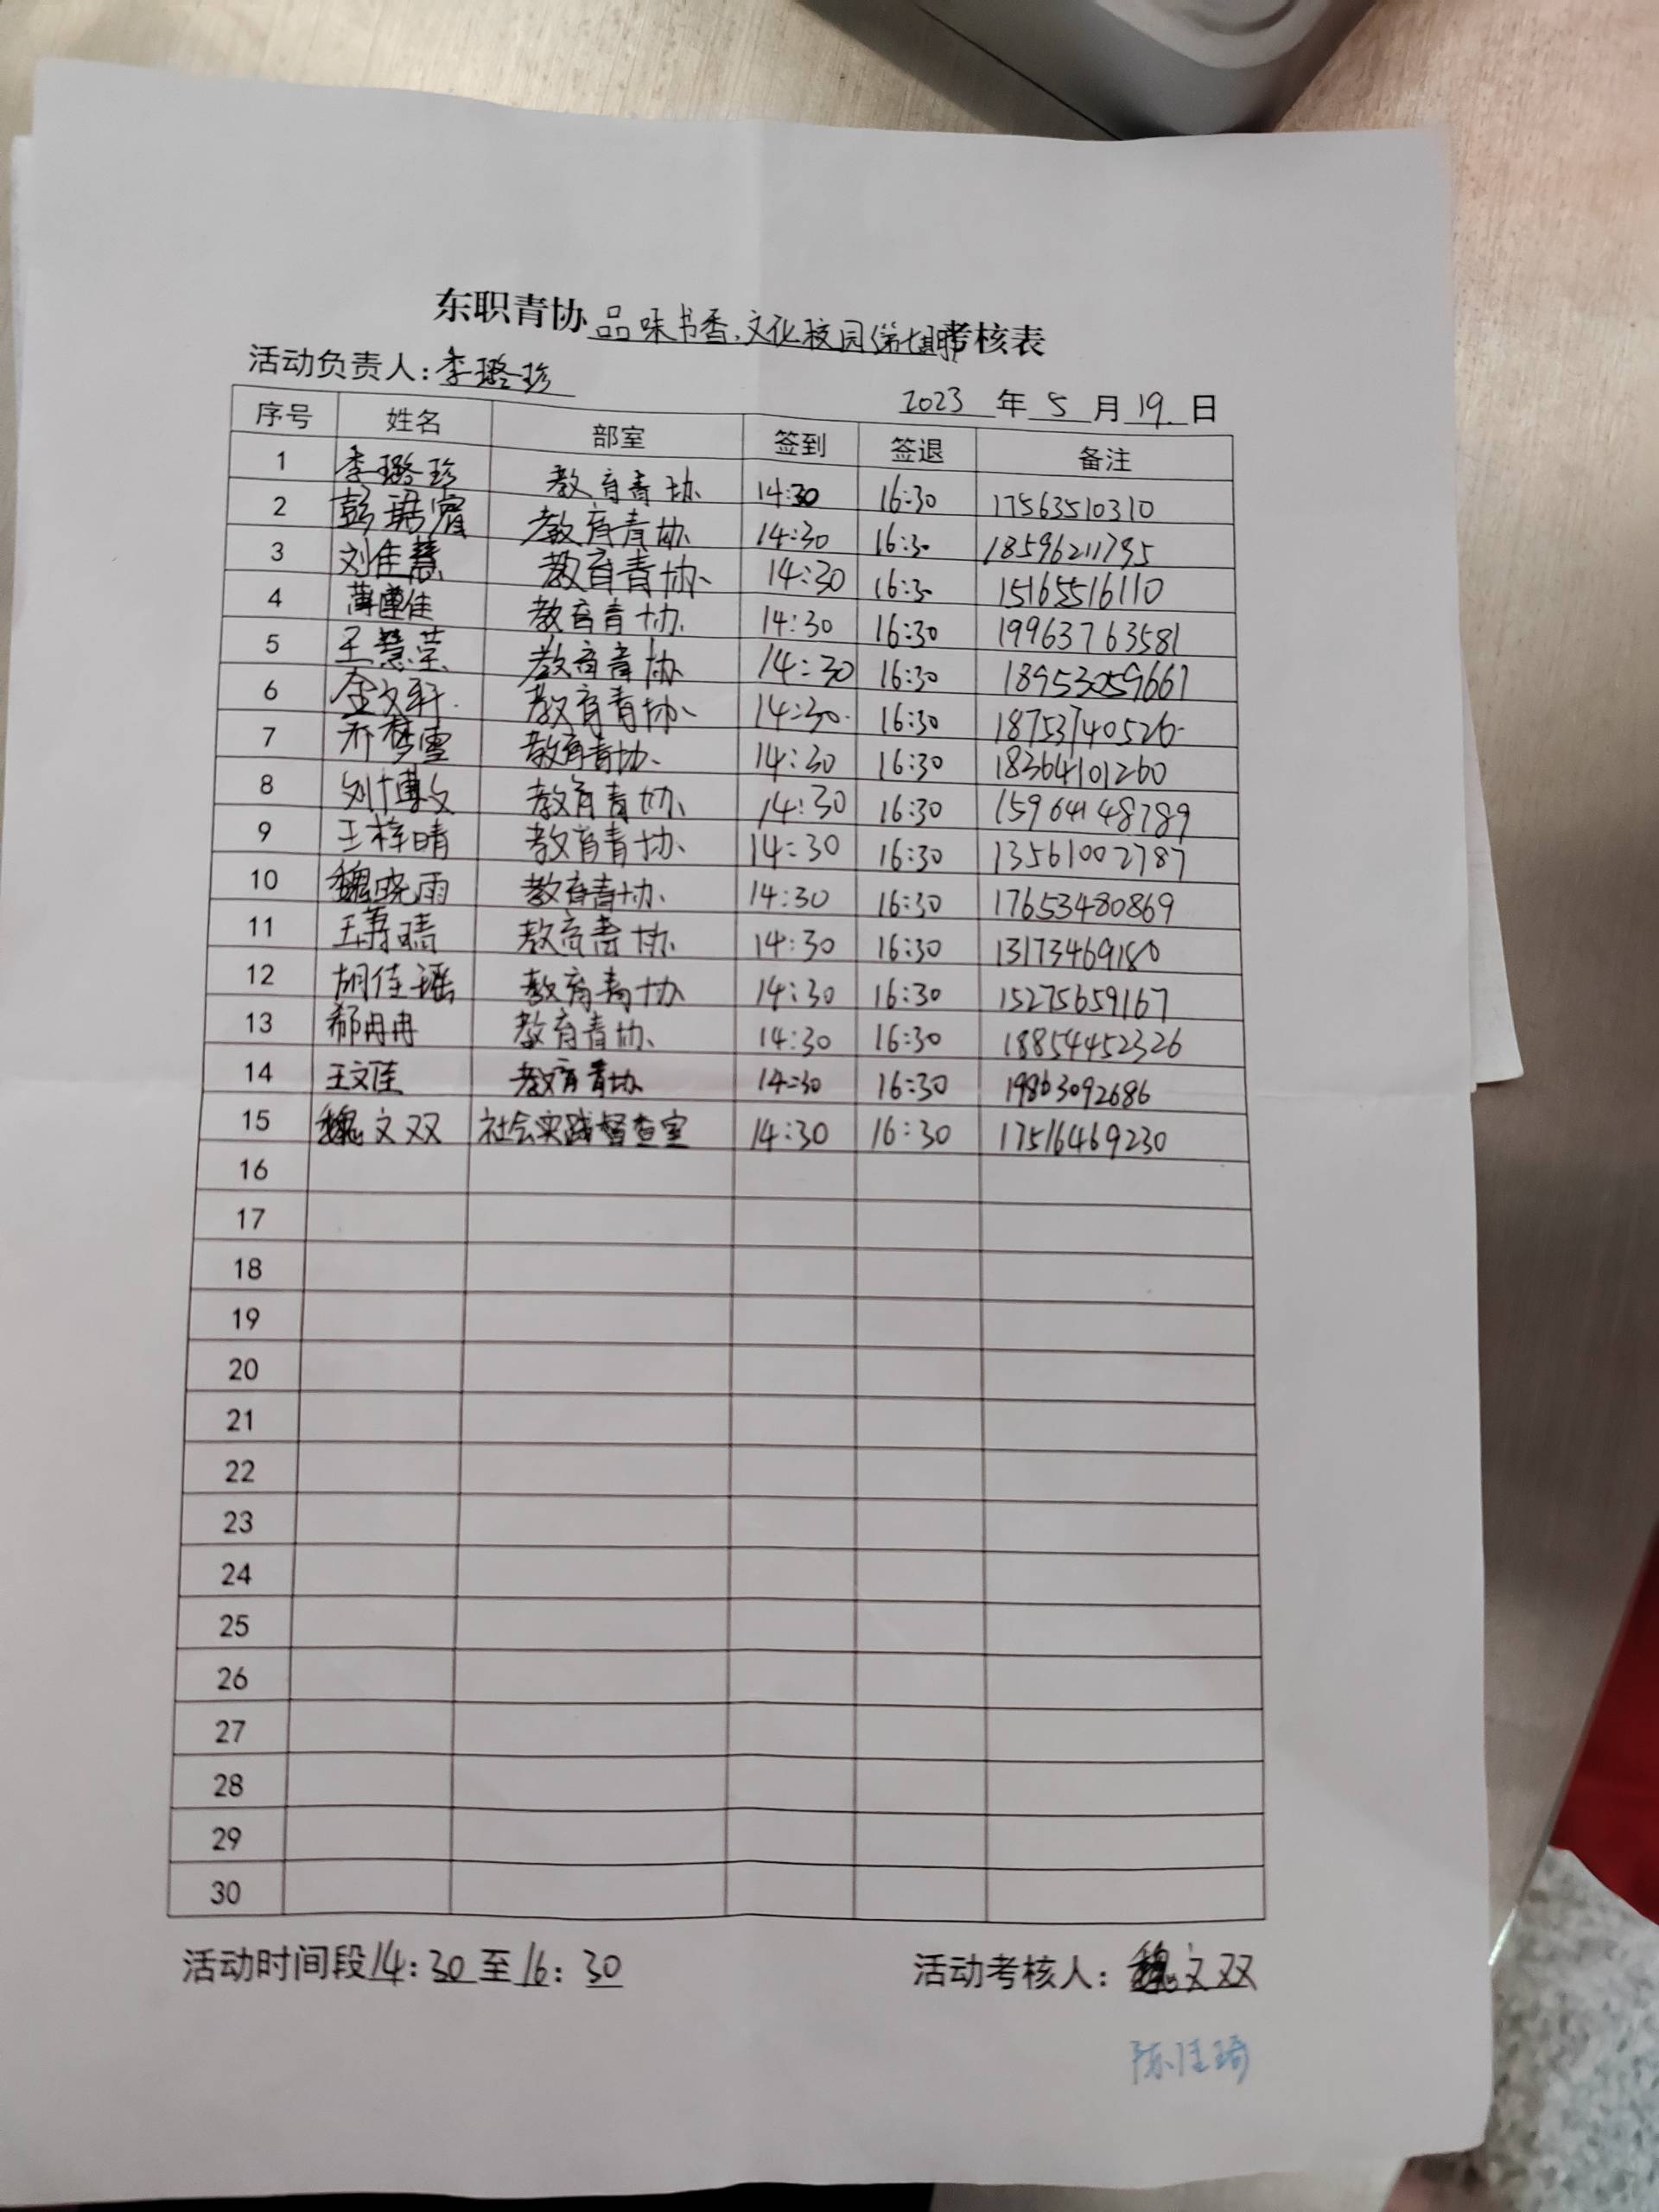 东职青协品味书香,文化校园(第七期)考核表
活动负责人:李璐珍
2023年5月19日
序号 姓名 部室 签到 签退 备注
1 李璐珍 教育青协 14:30 16:30 17563510310
2 彭珺 教育青协 14:30 16:30 18596211795
3 刘佳慧 教育青协 14:30 16:30 15165516110
4 佳 教育青协 14:30 16:30 19963763581
5 王慧荣 教育青协 14:30 16:30 18953059667
6 金文轩 教育青协 14:30 16:30 18753740526
7 乔梦雪 教育青协 14:30 16:30 18364101260
8 刘博文 教育青协 14:30 16:30 15964148789
9 王梓晴 教育青协 14:30 16:30 13561002787
10 魏晓雨 教育青协 14:30 16:30 17653480869
11 王 教育青协 14:30 16:30 13173469180
12 胡佳瑶 教育青协 14:30 16:30 15275659167
13 郗冉冉 教育青协 14:30 16:30 18854452326
14 王文佳 教育青协 14:30 16:30 19863092686
15 魏文双 社会实践督查室 14:30 16:30 17516469230
16
17
18
19
20
21
22
23
24
25
26
27
28
29
30
活动时间段14:30至16:30 活动考核人:魏文双
陈佳琦